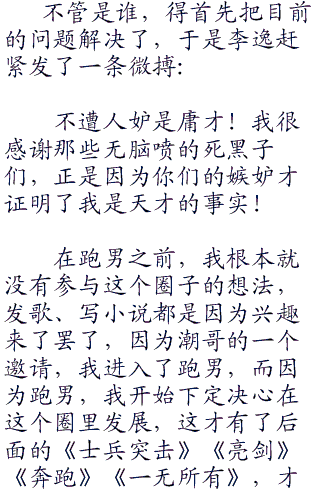 不管是谁，得首先把目前
的问题解决了，于是李逸赶
紧发了一条微搏:
不遭人妒是庸才！我很
感谢那些无脑喷的死黑子
们，正是因为你们的嫉妒才
证明了我是天才的事实！
在跑男之前，我根本就
没有参与这个圈子的想法，
发歌、写小说都是因为兴趣
来了罢了，因为潮哥的一个
邀请，我进入了跑男，而因
为跑男，我开始下定决心在
这个圈里发展，这才有了后
面的《士兵突击》《亮剑》
《奔跑》《一无所有》，才